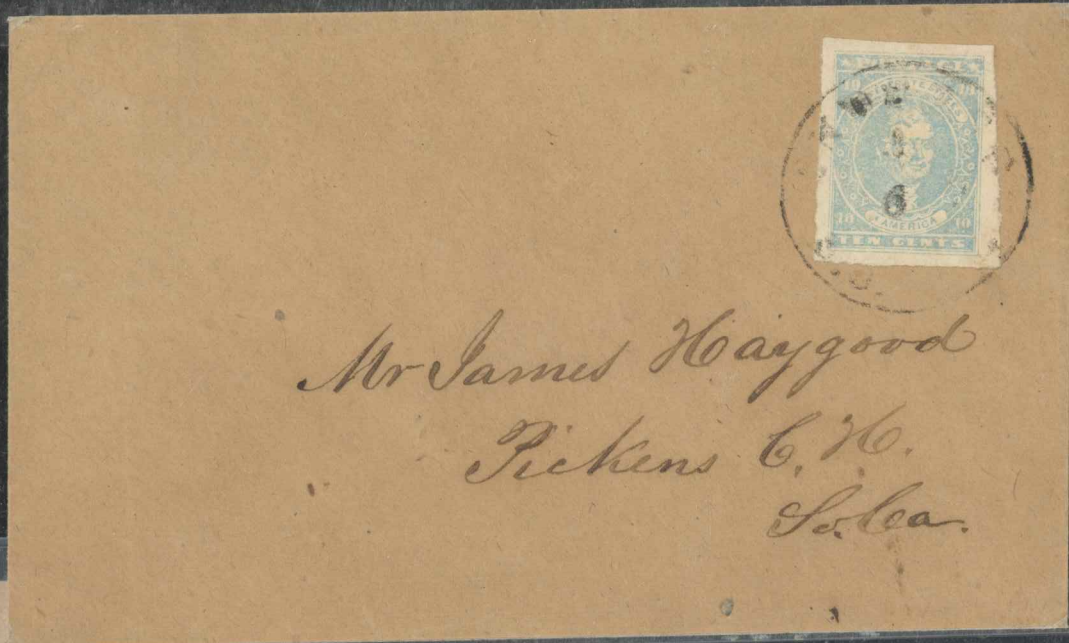 10 10
10 10
AMERICA
TEN CENTS
6
Mr James Haygood
Pickens C. H.
So. Ca.